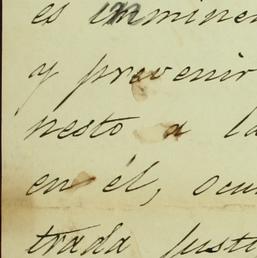 es inminen
y prevenir
nesto a la
en él, ocu
trada just